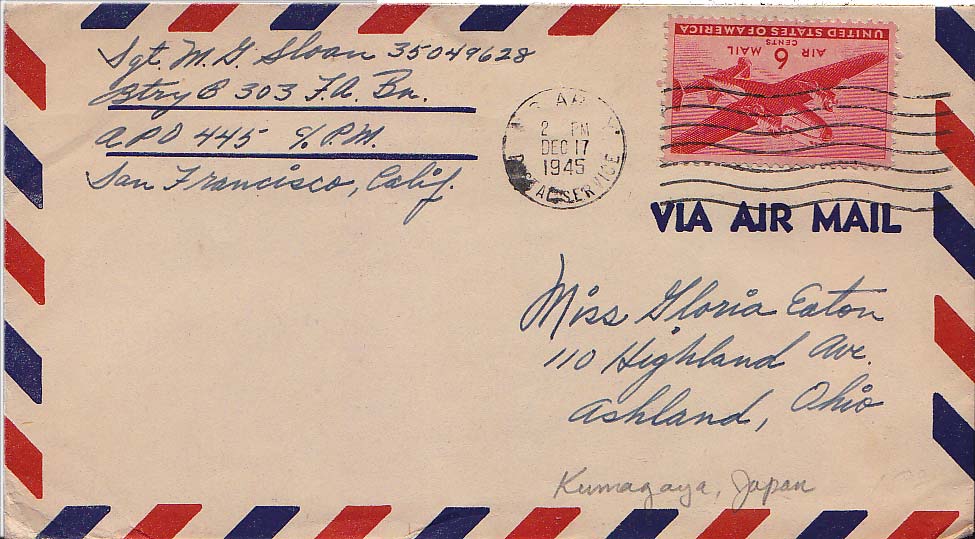 Sgt. M. G. Sloan 35049628
Btry B 303 F.A. Bn.
APO 445 c/o P.M.
San Francisco, Calif.
2 PM
DEC 17
1945
POSTAL SERVICE
UNITED STATES OF AMERICA
6 CENTS
AIR MAIL
VIA AIR MAIL
Miss Gloria Eaton
110 Highland Ave.
Ashland, Ohio
Kumagaya, Japan